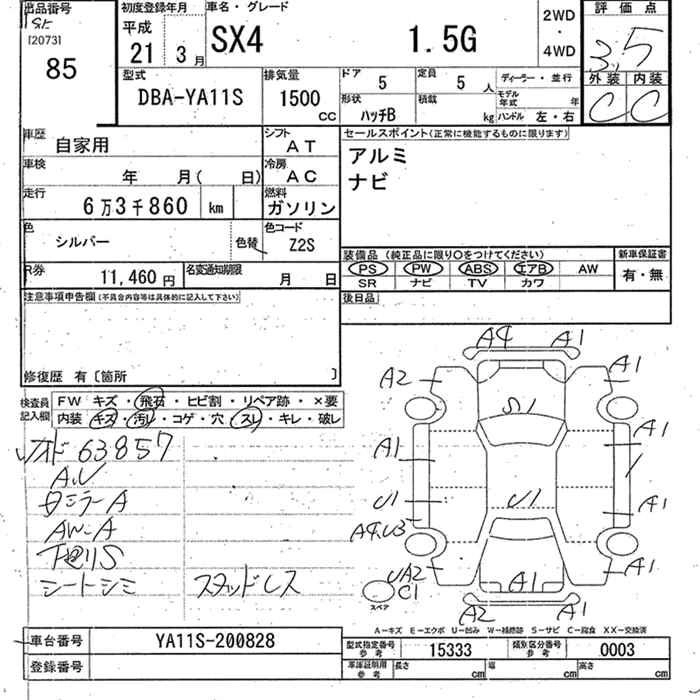 出品番号
[2073]
85
初度登録年月
平成
21 3 月
車名・グレード
SX4 1.5G
2WD
・
4WD
評価点
3.5
外装 内装
C C
型式
DBA-YA11S
排気量
1500
CC
ドア 5
定員 5 人
形状
ハッチB
積載
kg
ディーラー・並行
モデル年式 年
ハンドル 左・右
車歴
自家用
シフト
AT
車検
年 月( 日)
冷房
AC
走行
6万3千860 km
燃料
ガソリン
色
シルバー
色替
色コード
Z2S
R券
11,460 円
名変通知期限
月 日
セールスポイント(正常に機能するものに限ります)
アルミ
ナビ
装備品(純正品に限り○をつけてください)
PS PW ABS エアB AW
SR ナビ TV カワ
新車保証書
有・無
後日品
注意事項申告欄(不具合内容等は具体的に記入して下さい)
修復歴 有〔箇所 〕
検査員記入欄
FW キズ・飛石・ヒビ割・リペア跡・×要
内装 キズ・汚レ・コゲ・穴・スレ・キレ・破レ
63857
AW-A
下廻りS
シートシミ
スタッドレス
A4 A1
A2 A1
S1
A1 A1
U1 U1 A1
A4.U3
UA2 A1 A1
C1
スペア
A2 A1
A－キズ E－エクボ U－凹み W－補修跡 S－サビ C－腐食 XX－交換済
車台番号
YA11S-200828
登録番号
型式指定番号
参考
15333
類別区分番号
参考
0003
車庫証明用
参考
長さ cm 幅 cm 高さ cm